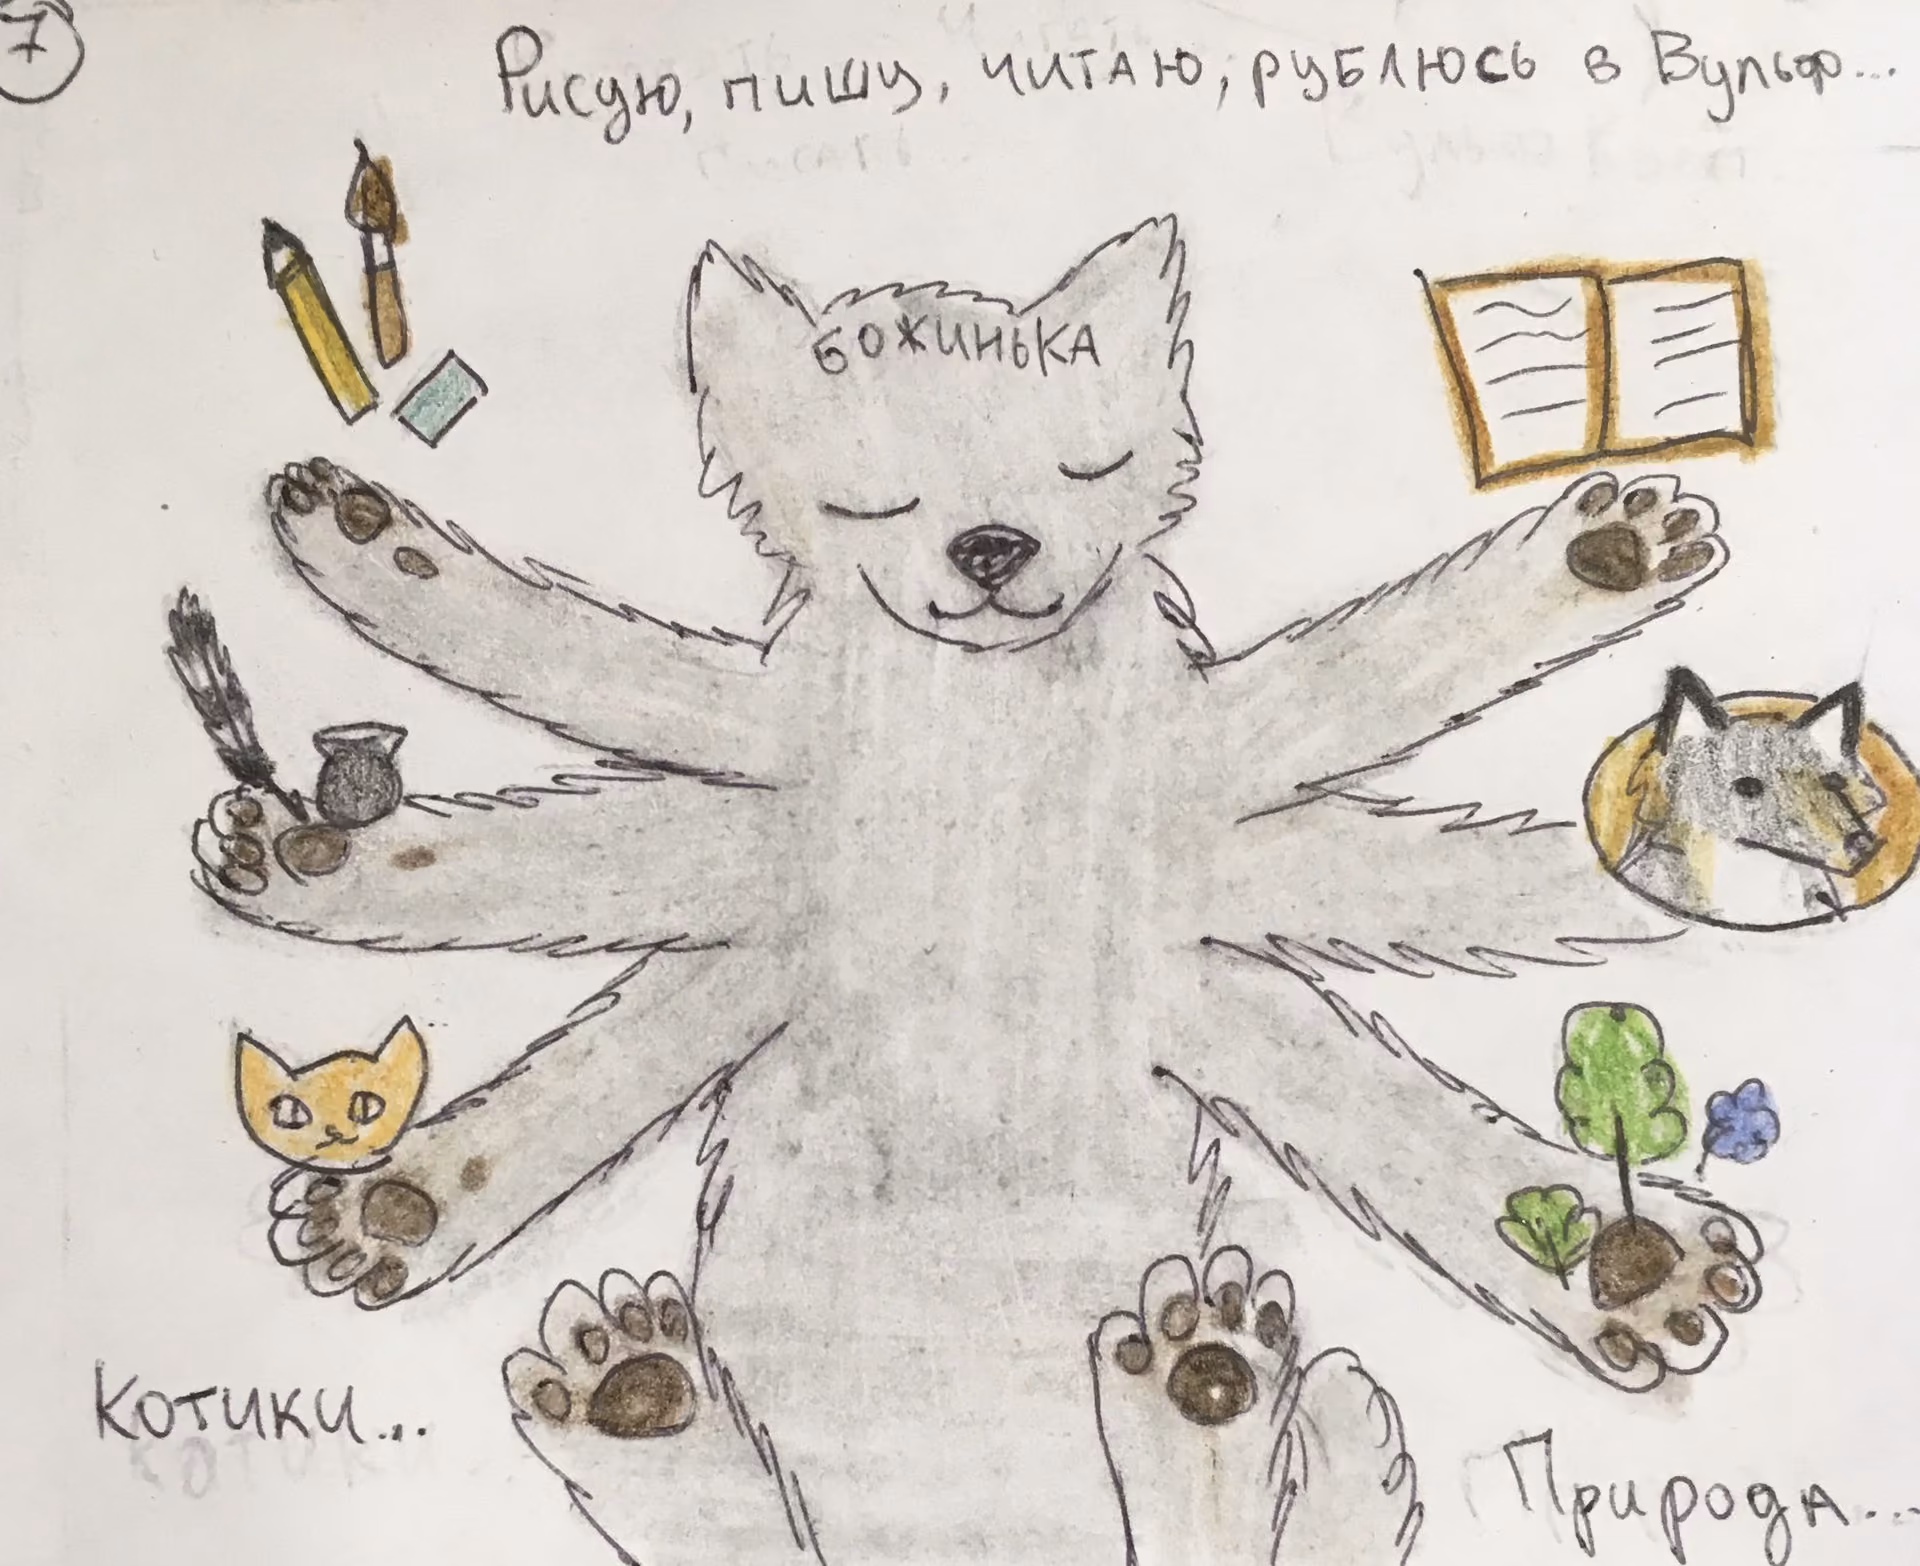 7
Рисую, пишу, читаю, рублюсь в Вульф...
БОЖИНЬКА
Котики...
Природа...